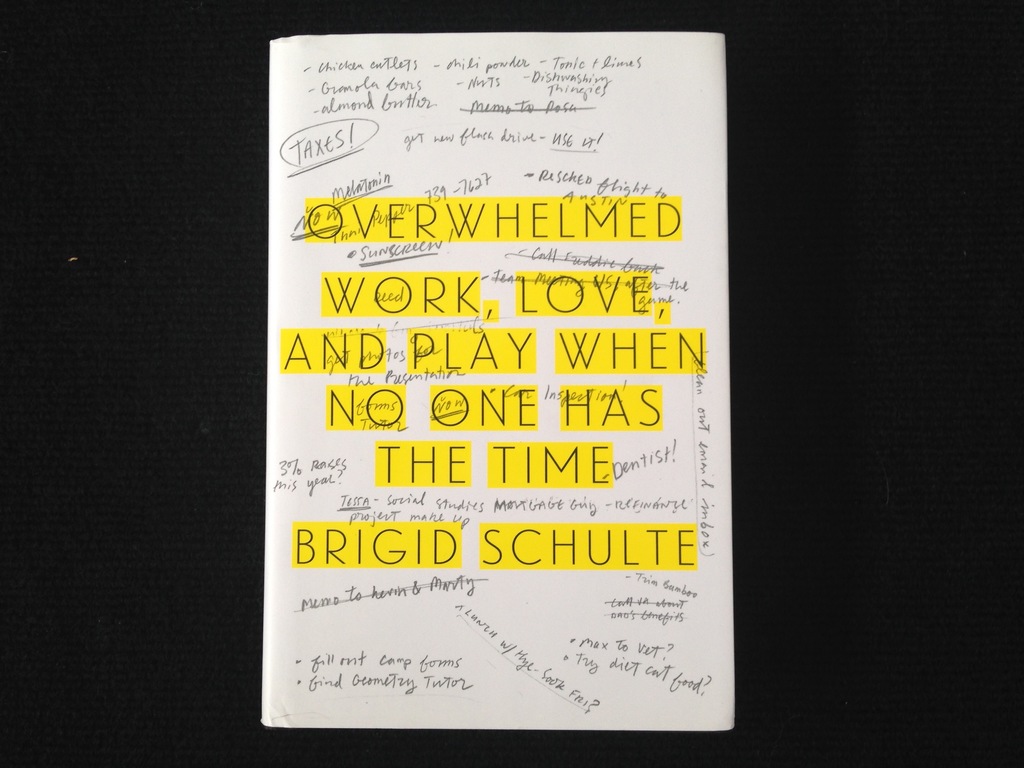 - chicken cutlets - chili powder - Tonic + limes
- Granola bars - Nuts - Dishwashing Thingies
- almond butter Memo to Rosa
TAXES! get new flash drive - USE IT!
Melatonin 739-7627 - RESCHED flight to
NOW AUSTIN
OVERWHELMED
• SUNSCREEN
- Call Freddie back
- Team Meeting US/ after the
WORK, LOVE,
need game.
get photos for
AND PLAY WHEN
the Presentation
NO ONE HAS
forms NOW • Car Inspection
Tutor
THE TIME
- Dentist!
3% Raises
this year?
clean out email inbox)
TESSA - Social Studies MORTGAGE Guy - REFINANCE
project make up
BRIGID SCHULTE
Memo to Kevin & Marty
- Trim Bamboo
- call VA about
DAD'S benefits
LUNCH w/ Hye-Sook FRI?
• Max to vet?
• Try diet cat food?
• fill out camp forms
• find Geometry Tutor